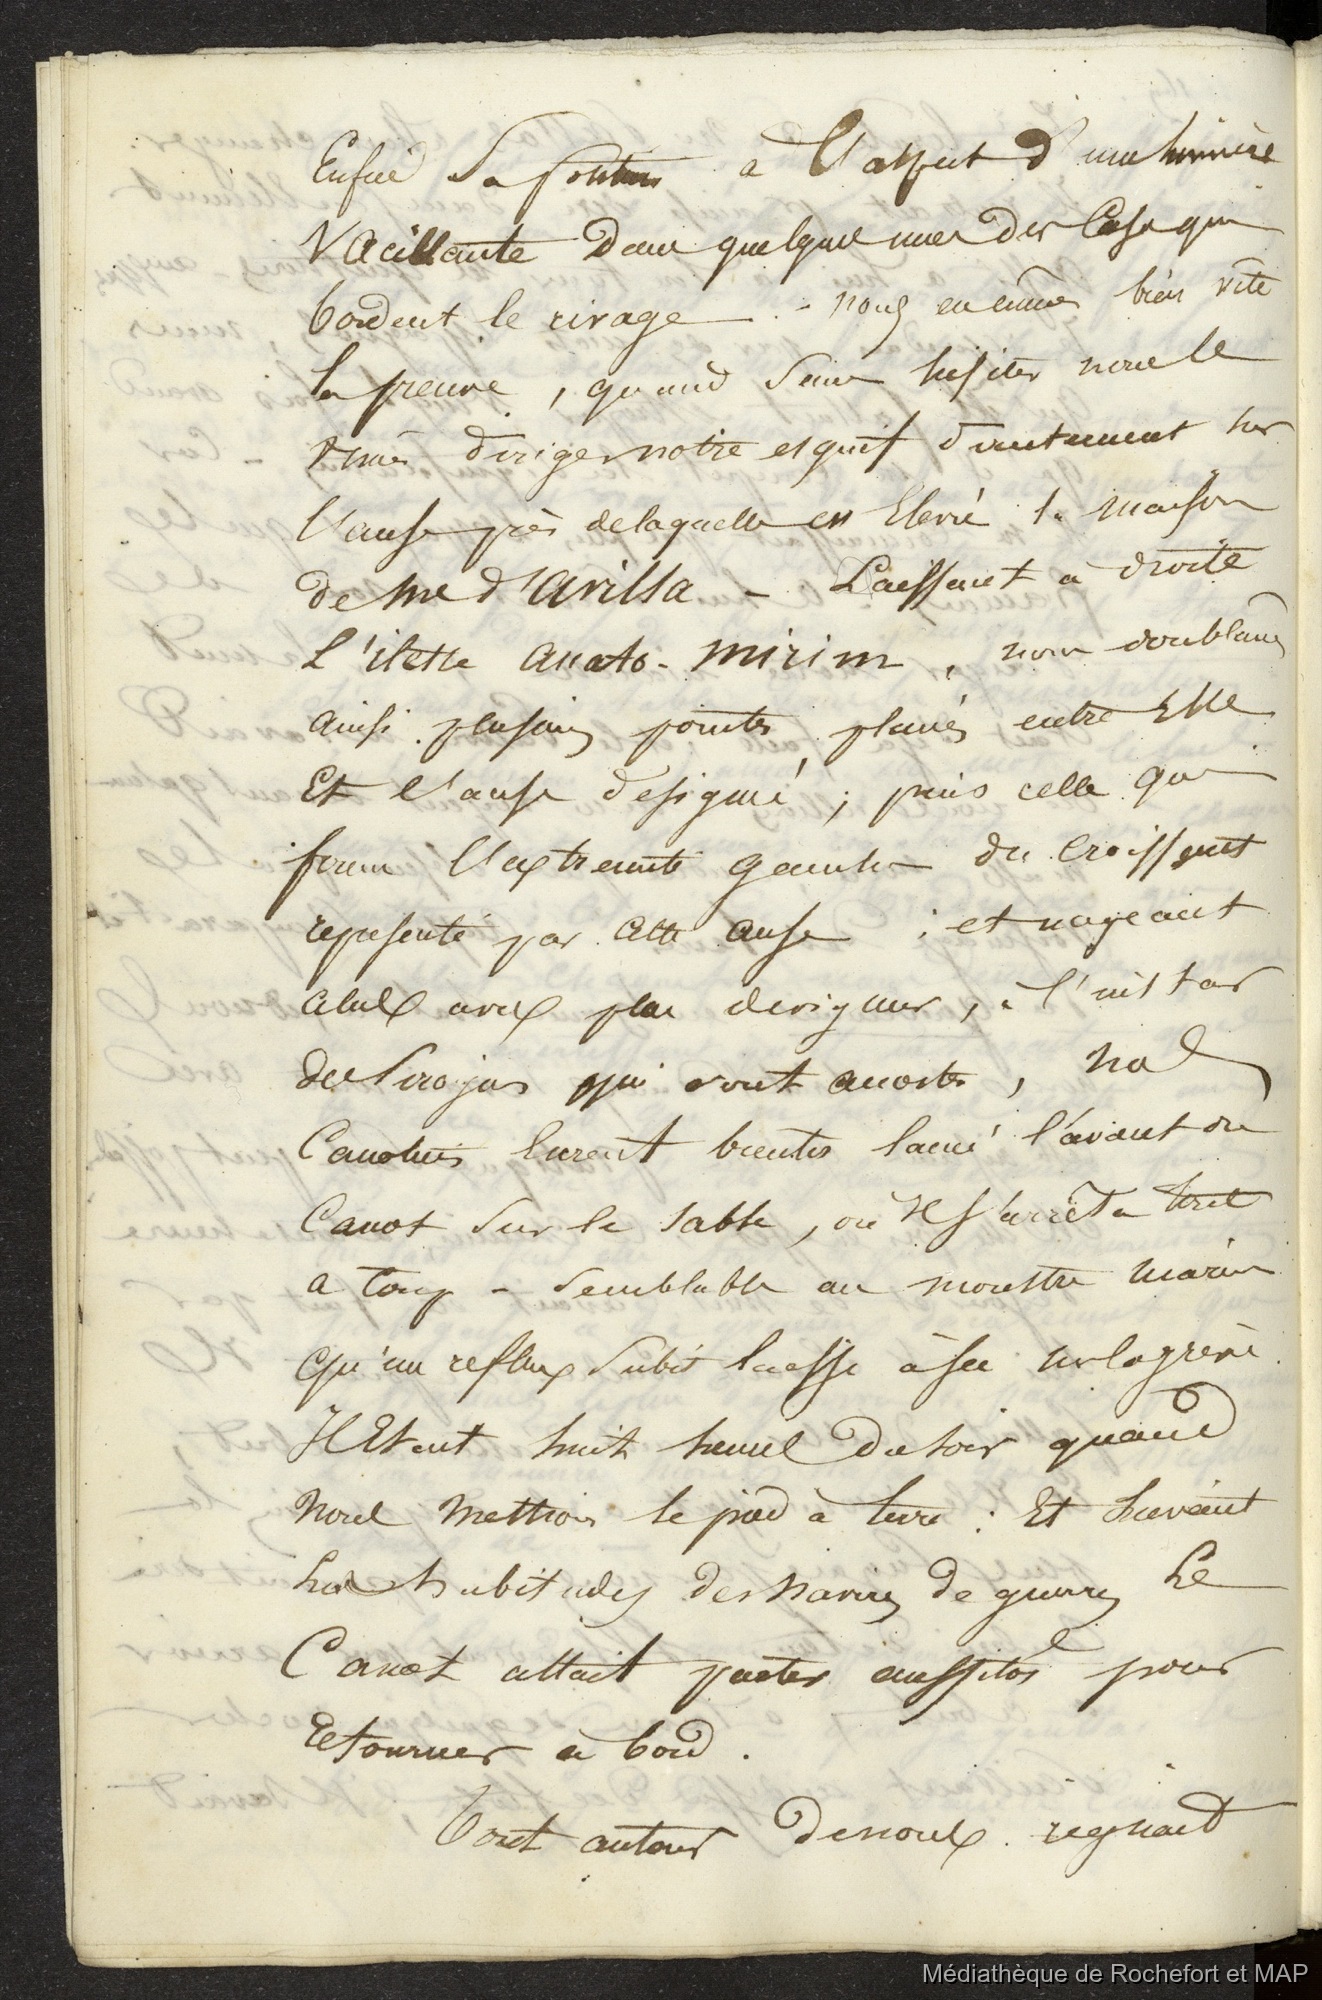 Enfin Sa position à l'aspect d'une lumière
Vacillante Dans quelques unes des Cases qui
bordent le rivage. - nous en eûmes bien vîte
la preuve, quand Sans hésiter nous le
vimes diriger notre esquif directement sur
l'anse près de laquelle est Elevée la maison
de Me d'Avilla - Laissant à droite
L'ilette Anato-mirim, nous doublâmes
ainsi plusieurs pointes placées entre Elle
Et l'anse désignée ; puis celle qui
forme l'extremité gauche du croissant
representé par cette anse : et nageant
alors avec plus de vigueur, à l'instar
des Pirogues qui vont accoster, nos
Canotiers eurent bientôt lancé l'avant du
Canot Sur le sable, où Il s'arrêta tout
à Coup - Semblable au monstre marin
qu'un reflux Subit laisse à sec sur la grève.
Il Etait huit heures du soir quand
nous mettions le pied à terre : Et Suivant
les habitudes des navires de guerre, Le
Canot allait partir aussitôt pour
Retourner à bord.
Tout autour de nous regnait
Médiathèque de Rochefort et MAP